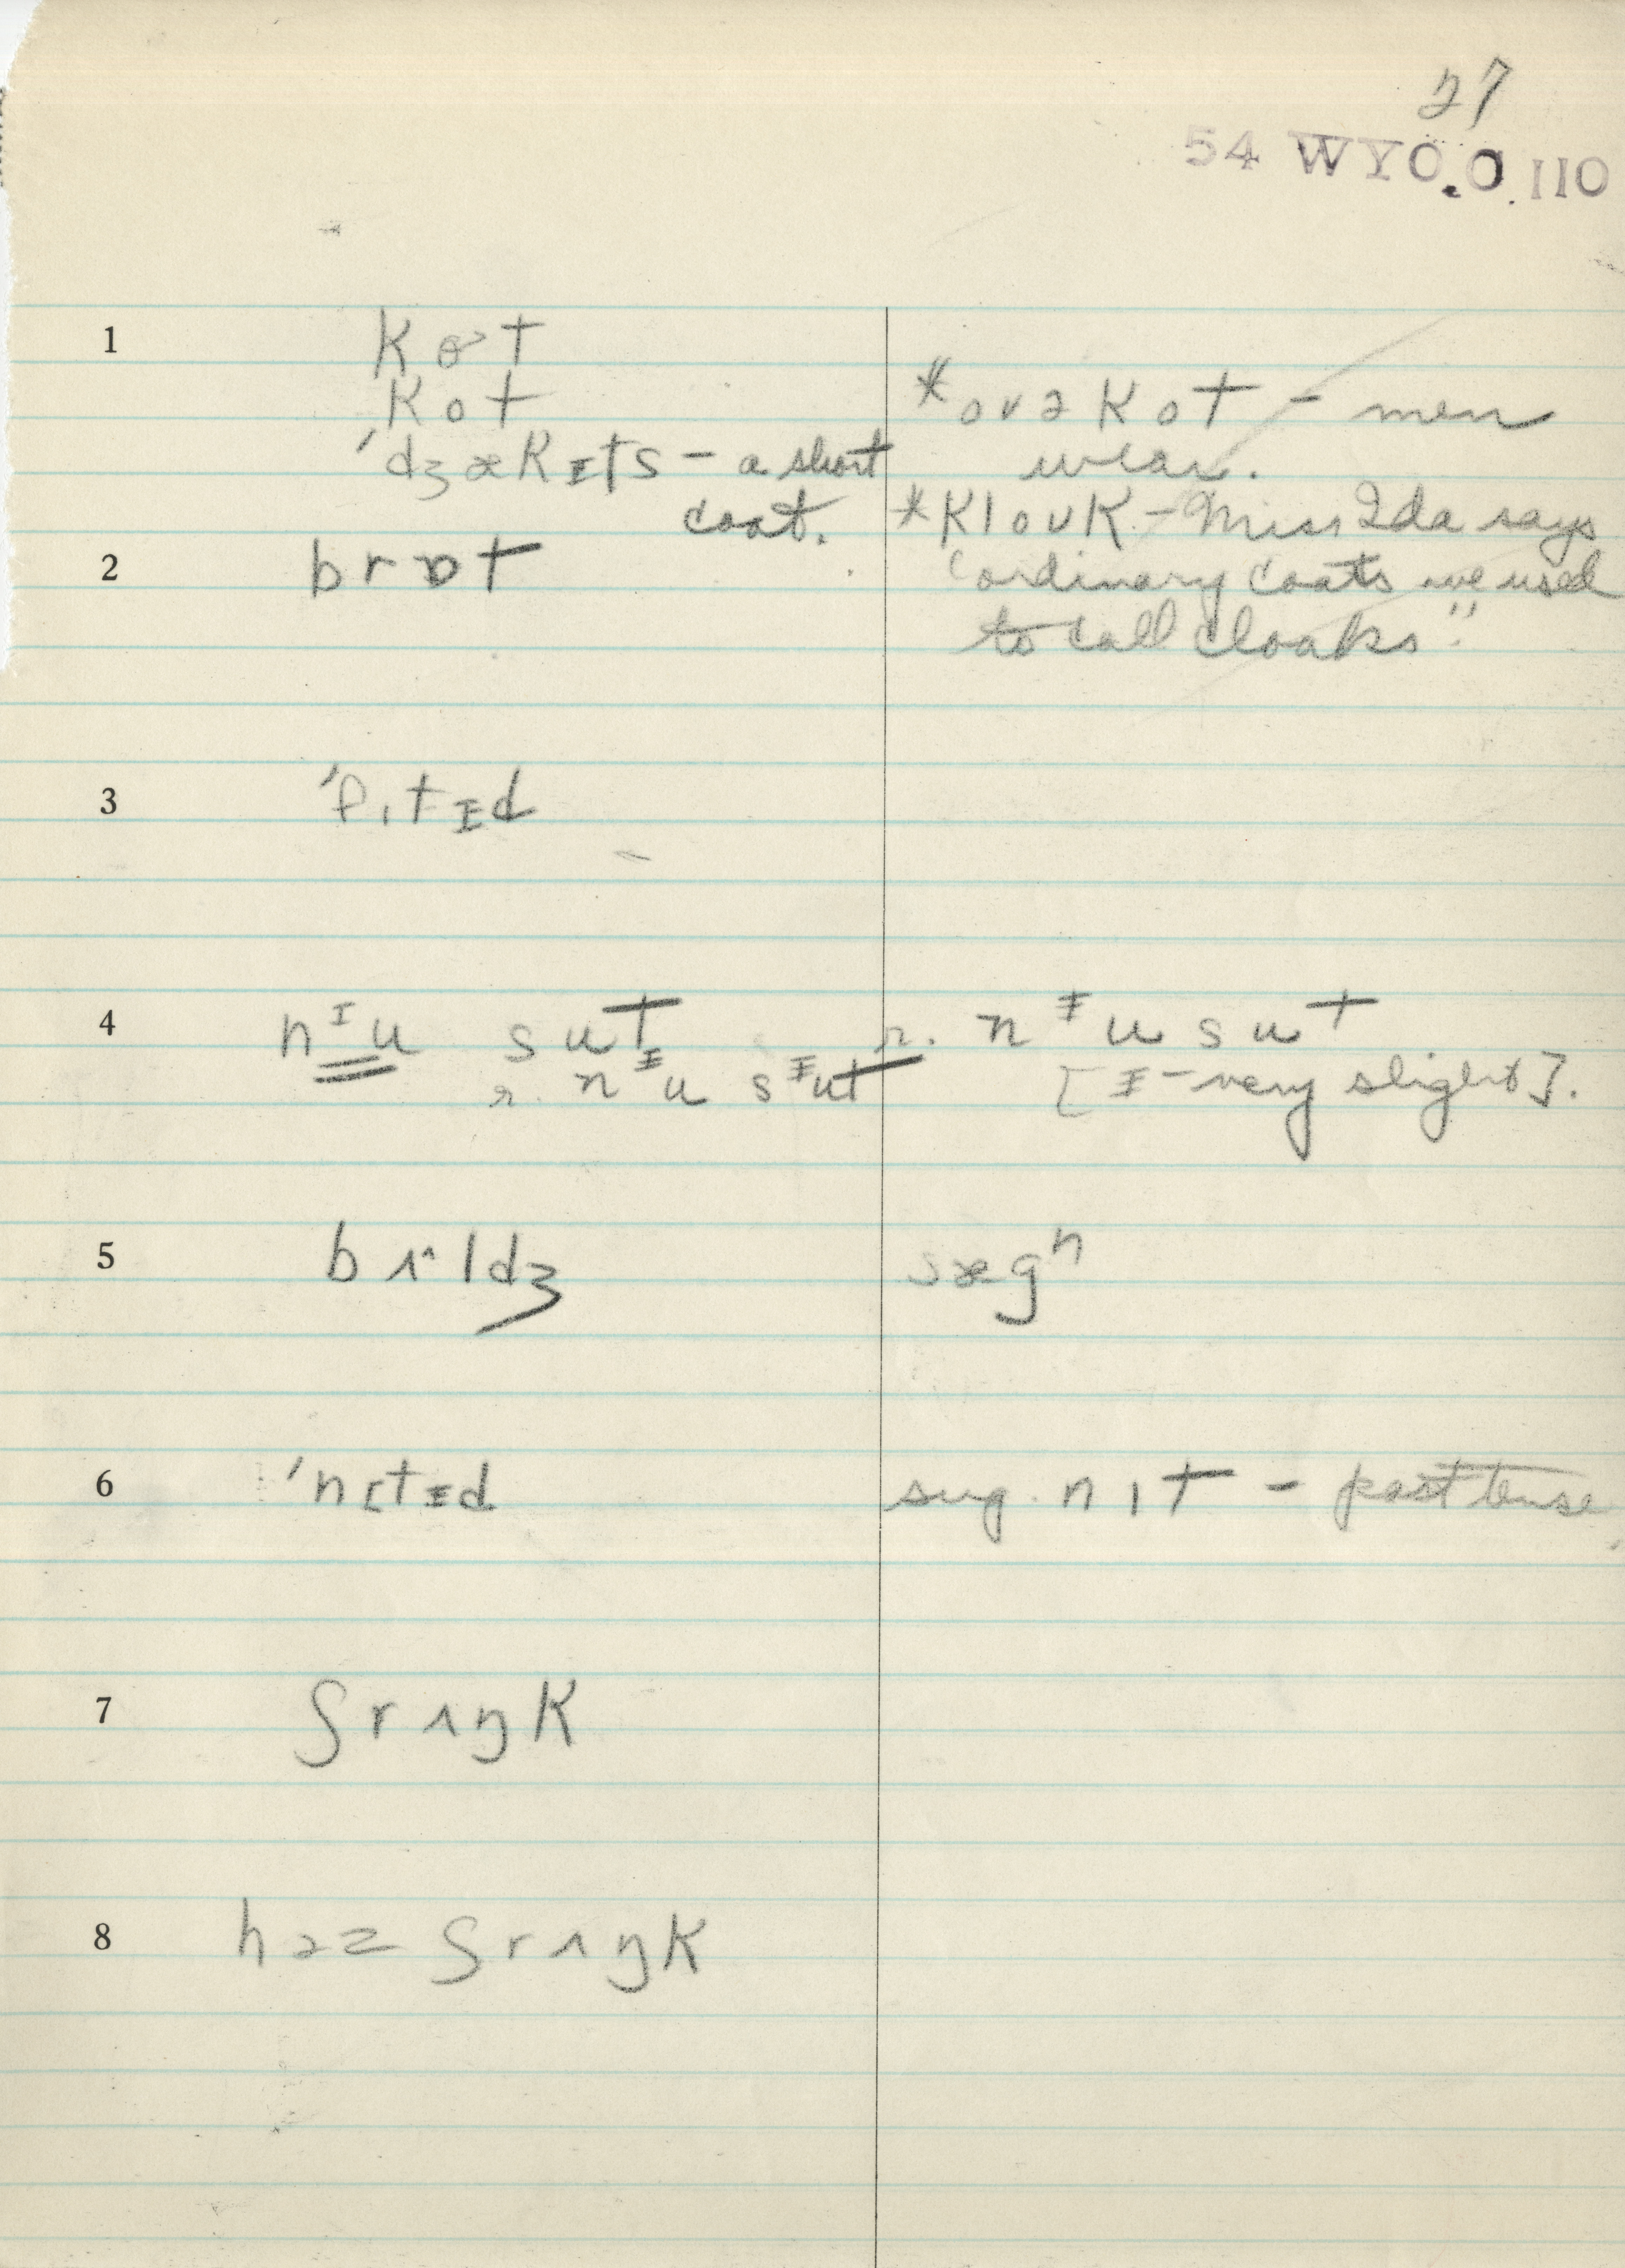 27
54 WYO.O.110
1 Kɵ˃t
Kot
ˈdʒækᵻts – a short coat.
*ovəkot – men wear.
*klouk – Miss Ida says "ordinary coats we used to call cloaks".
2 brɒt
3 ˈfɪtᵻd
4 nᴵu sut
r. nᵻu sᵻut
r. nᵻu sut
[ᵻ – very slight].
5 bʌ^ldʒ
sægⁿ
6 ˈnɪtᵻd
sug. nɪt – past tense
7 ʃrʌŋk
8 həz ʃrʌŋk